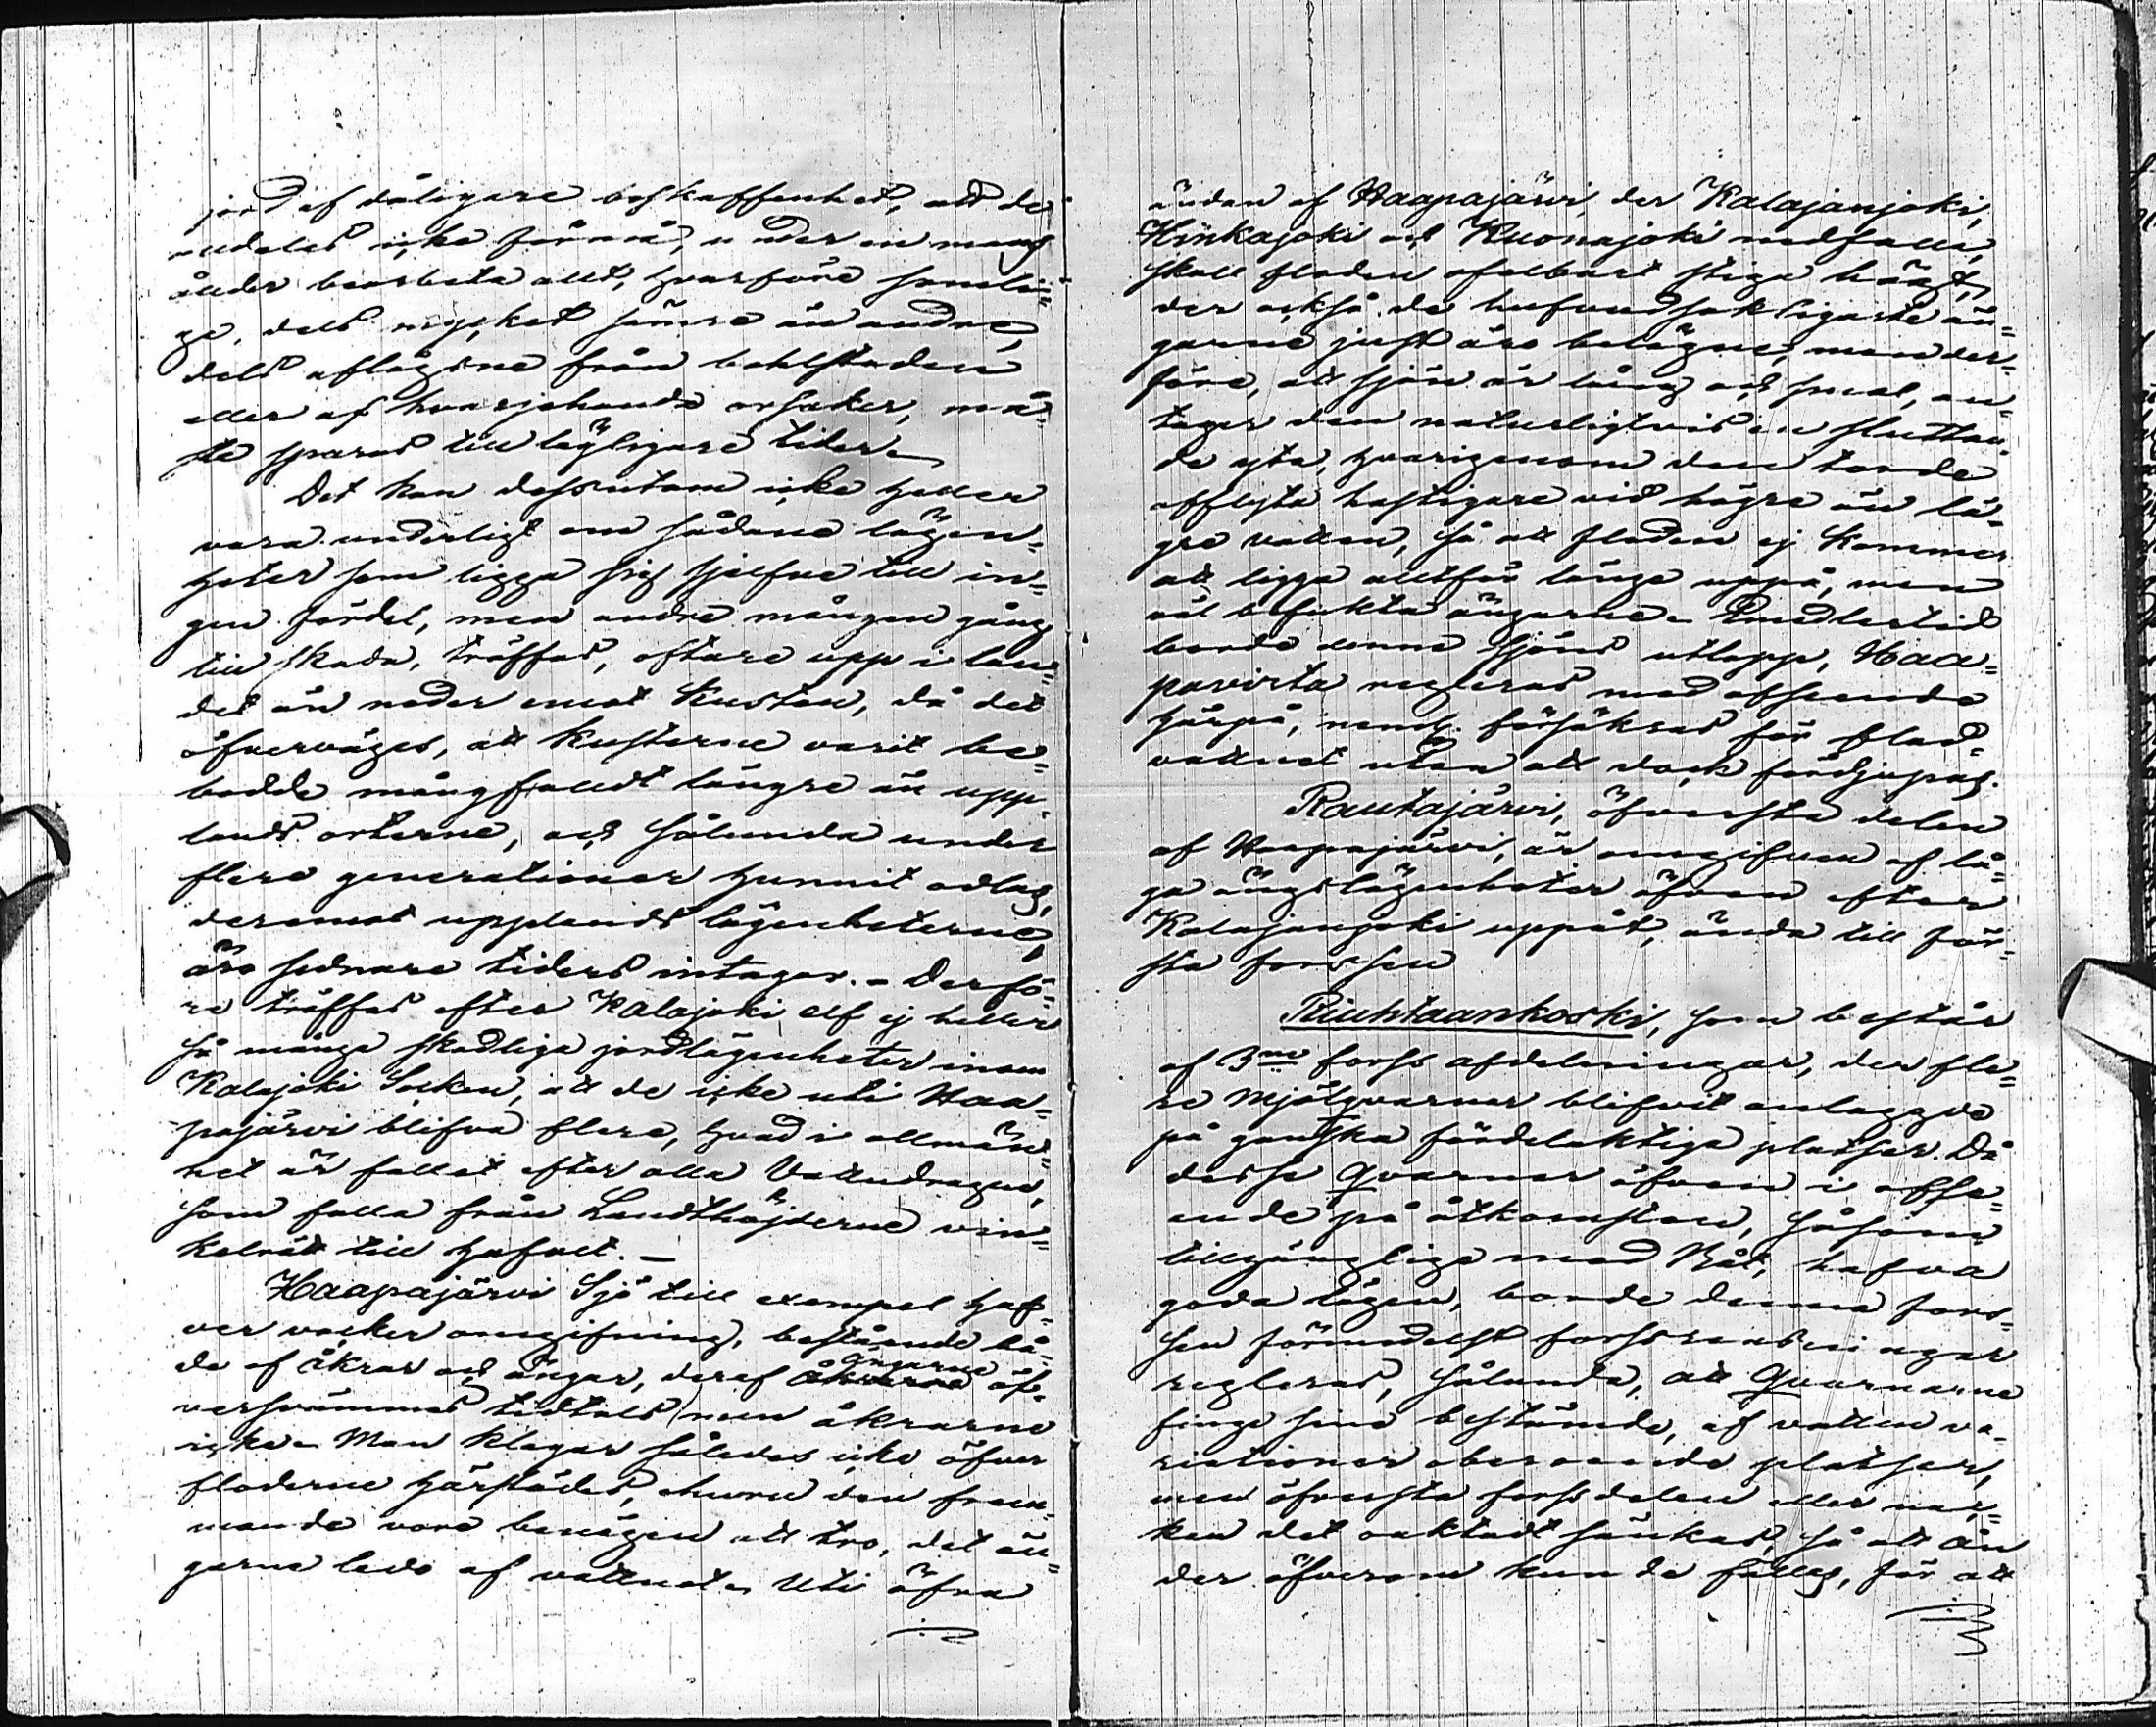 jord af dåligare beskaffenhet, att de
alldeles icke förmå, under en mans
ålder bearbeta allt, hvarföre somli=
ge, dels mycket sämre än andre,
dels aflägsne från bohlstaden
eller af hvarjehanda orsaker, må=
ste sparas till lägligare tider.
Det kan dessutom icke heller
vara underligt om sådane lägen=
heter som ligga sig sjelfve till in=
gen fördel, men andra mången gång
till skada, träffas, oftare upp i lan=
det än neder emot Kusten, då det
öfverväges, att kusterne varit be=
bodde mångfalldt längre än upp=
lands orterne, och sålunda under
flere generationer hunnit odlas,
deremot upplands lägenheterne,
äro sednare tiders intagor. – Derfö=
re träffas efter Kalajoki elf ej heller
så många skadliga jordlägenheter inom
Kalajoki Socken, att de icke uti Haa=
pajärvi blifva flere, hvad i allmän=
het är fallet efter alla Vattudragen,
som falla från Landthöjderne vin=
kelrätt till hafvet. –
Haapajärvi Sjö till exempel haf=
ver vacker omgifning, bestående bå=
de af åkrar och ängar, deraf ängarne öf=
versvämmas tidtals men åkrarne
icke. Man klagar således icke öfver
floderne härstädes, ehuru den frem=
mande vore benägen att tro, det än=
garne led af vattnet. Uti öfra
ändan af Haapajärvi, der Kalajanjoki,
Hinkajoki och Kuonajoki nedfalla,
skall floden ofelbart stiga högst,
der också de hufvudsakligaste än=
garne just äro belägne, men der=
före, att sjön är lång och smal, an=
tager den naturligtvis en sluttan=
de yta, hvarigenom den torde
afflyta hastigare vid högre än lä=
gre vatten, så att floden ej kommer
att ligga alltför länge uppå, men
väl befukta ängarne. Emedlertid
borde denna sjöns utlopp, Haa=
pavirta regleras med afseende
härpå, neml. försökras för flod=
vattnet utan att dock fördjupas.
Rautajärvi, öfversta delen
af Haapajärvi, är omgifven af lå=
ga ängslägenheter äfven efter
Kalajanjoki uppåt, ända till för=
sta forssen
Riuhtaankoski, som består
af 3ne forss afdelningar, der fle=
re Mjölqvarnar blifvit anlaggde
på ganska fördelaktiga platser. Då
desse Qvarnar äfven i afse=
ende på åtkomsten, såsom
tillgänglige med Båt, hafva
goda lägen, borde denna fors=
sen förmedelst forssrensningar
regleras, sålunda, att Qvarnarne
finge sine bestämde, af vatten va=
riationer oberoende platser,
men öfversta forssdelen eller nac=
ken det oaktadt sänkas, så att ån
der öfverom kunde fällas, för att